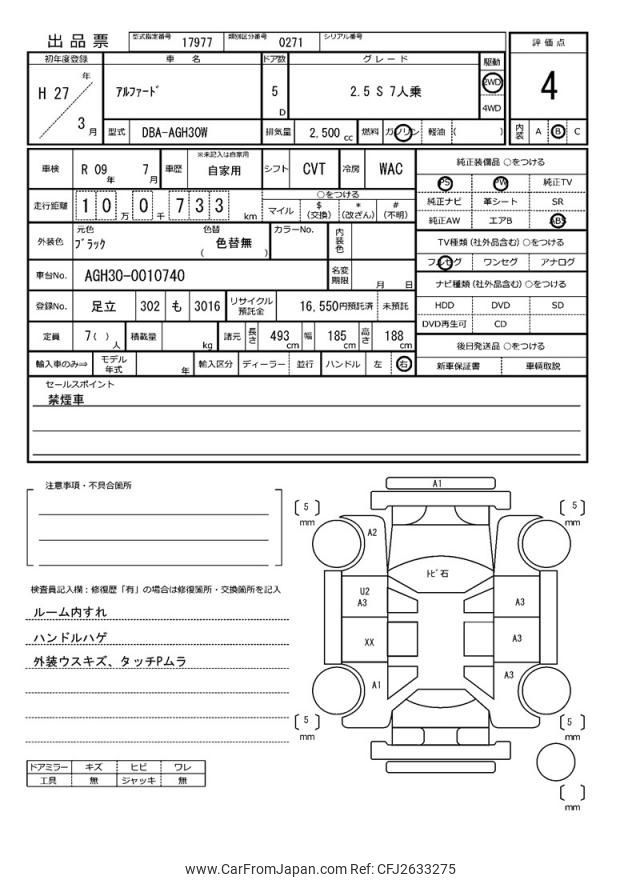 出品票 型式指定番号 17977 類別区分番号 0271 シリアル番号
評価点
4
内装 A B C
初年度登録 車名 ドア数 グレード 駆動
H 27 年 3 月 アルファード 5 D 2.5 S 7人乗 2WD 4WD
型式 DBA-AGH30W 排気量 2,500 cc 燃料 ガソリン 軽油 ( )
車検 R 09 年 7 月 車歴 ※未記入は自家用 自家用 シフト CVT 冷房 WAC
走行距離 10万0千733 km ○をつける
マイル $(交換) *(改ざん) #(不明)
外装色 元色 ブラック 色替 ( 色替無 ) カラーNo. 内装色
車台No. AGH30-0010740 名変期限 月 日
登録No. 足立 302 も 3016 リサイクル預託金 16,550円預託済 未預託
定員 7( )人 積載量 kg 諸元 長さ 493 cm 幅 185 cm 高さ 188 cm
輸入車のみ⇒ モデル年式 年 輸入区分 ディーラー 並行 ハンドル 左 右
純正装備品 ○をつける
PS PW 純正TV
純正ナビ 革シート SR
純正AW エアB ABS
TV種類 (社外品含む) ○をつける
フルセグ ワンセグ アナログ
ナビ種類 (社外品含む) ○をつける
HDD DVD SD
DVD再生可 CD
後日発送品 ○をつける
新車保証書 車輌取説
セールスポイント
禁煙車
注意事項・不具合箇所
検査員記入欄：修復歴「有」の場合は修復箇所・交換箇所を記入
ルーム内すれ
ハンドルハゲ
外装ウスキズ、タッチPムラ
ドアミラー キズ ヒビ ワレ
工具 無 ジャッキ 無
A1
[ 5 ] mm
[ 5 ] mm
A2
トビ石
U2
A3
A3
XX
A3
A1
A3
[ 5 ] mm
[ 5 ] mm
[ ] mm
www.CarFromJapan.com Ref: CFJ2633275